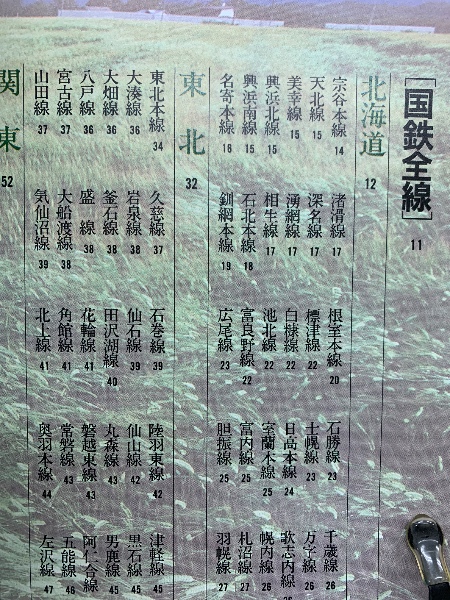 [国鉄全線] 11
北海道 12
宗谷本線 14
天北線 15
美幸線 15
興浜北線 15
興浜南線 15
名寄本線 16
渚滑線 17
深名線 17
湧網線 17
相生線 17
石北本線 18
釧網本線 19
根室本線 20
標津線 22
白糠線 22
池北線 22
富良野線 22
広尾線 23
石勝線 23
士幌線 23
日高本線 24
室蘭本線 25
富内線 25
胆振線 25
千歳線 26
万字線 26
歌志内線 26
幌内線 26
札沼線 27
羽幌線 27
東北 32
東北本線 34
大湊線 36
大畑線 36
八戸線 36
宮古線 37
山田線 37
久慈線 37
岩泉線 38
釜石線 38
盛線 38
大船渡線 38
気仙沼線 39
石巻線 39
仙石線 39
田沢湖線 40
花輪線 41
角館線 41
北上線 41
陸羽東線 42
仙山線 42
丸森線 43
磐越東線 43
常磐線 43
奥羽本線 44
津軽線 45
黒石線 45
男鹿線 45
阿仁合線 45
五能線 46
左沢線 47
関東 52